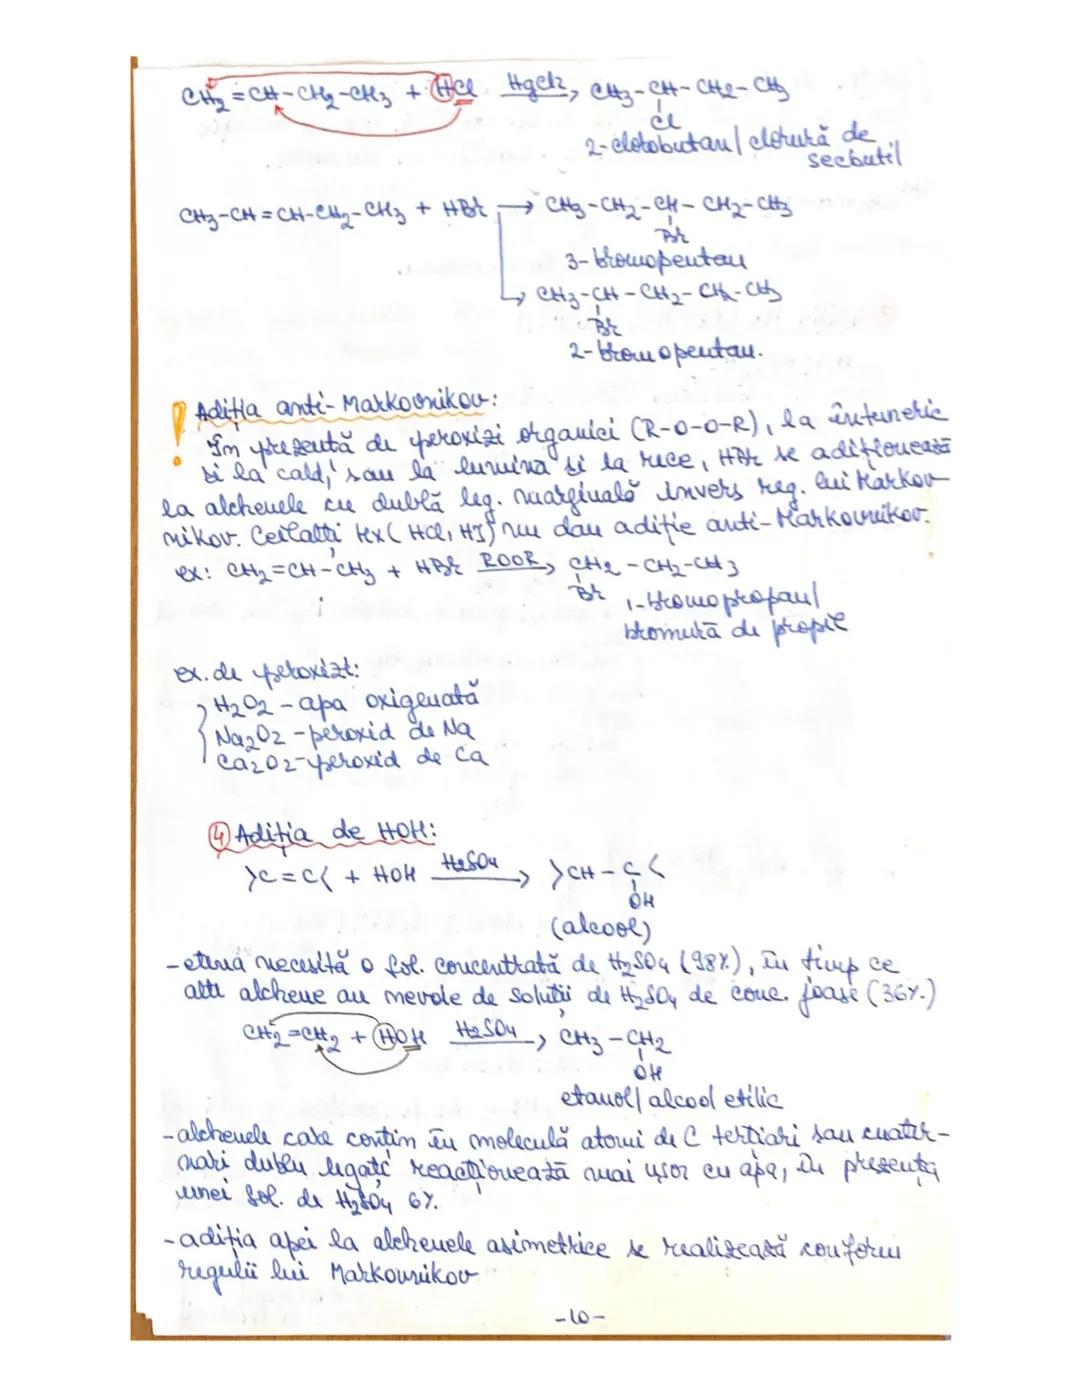 CH2=CH-CH2-CH3 + HCl HgCl2→ CH3-CH-CH2-CH3
Cl
2-clorobutan/clorură de
secbutil
CH3-CH=CH-CH2-CH3 + HBr → CH3-CH2-CH-CH2-CH3
Br
3-bromopentan
→ CH3-CH-CH2-CH2-CH3
Br
2-bromopentan.
! Adiția anti-Markovnikov:
În prezență de peroxizi organici (R-O-O-R), la întuneric
și la cald, sau la lumină și la rece, HBr se adiționează
la alchenele cu dublă leg. marginală invers reg. lui Markov-
nikov. Ceilalți HX (HCl, HI) nu dau adiție anti-Markovnikov.
ex: CH2=CH-CH3 + HBr ROOR→ CH2-CH2-CH3
Br
1-bromopropan/
bromură de propil
ex. de peroxizi:
H2O2 - apa oxigenată
Na2O2 - peroxid de Na
Ca2O2 - peroxid de Ca
④ Adiția de HOH:
>C=C< + HOH H2SO4→ >CH-C<
OH
(alcool)
- etena necesită o sol. concentrată de H2SO4 (98%), în timp ce
alte alchene au nevoie de soluții de H2SO4 de conc. joase (36%.)
CH2=CH2 + HOH H2SO4→ CH3-CH2
OH
etanol/alcool etilic
- alchenele care conțin în moleculă atomi de C terțiari sau cuater-
nari dublu legați reacționează mai ușor cu apa, în prezența
unei sol. de H2SO4 6%.
- adiția apei la alchenele asimetrice se realizează conform
regulii lui Markovnikov
-10-